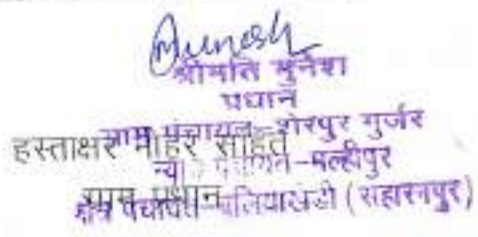 Munesh
श्रीमति मुनेश
प्रधान
ग्राम पंचायत-शेरपुर गुर्जर
हस्ताक्षर मोहर सहित
न्या पंचायत-मल्हीपुर
ग्राम प्रधान
क्षेत्र पंचायत (सहारनपुर)